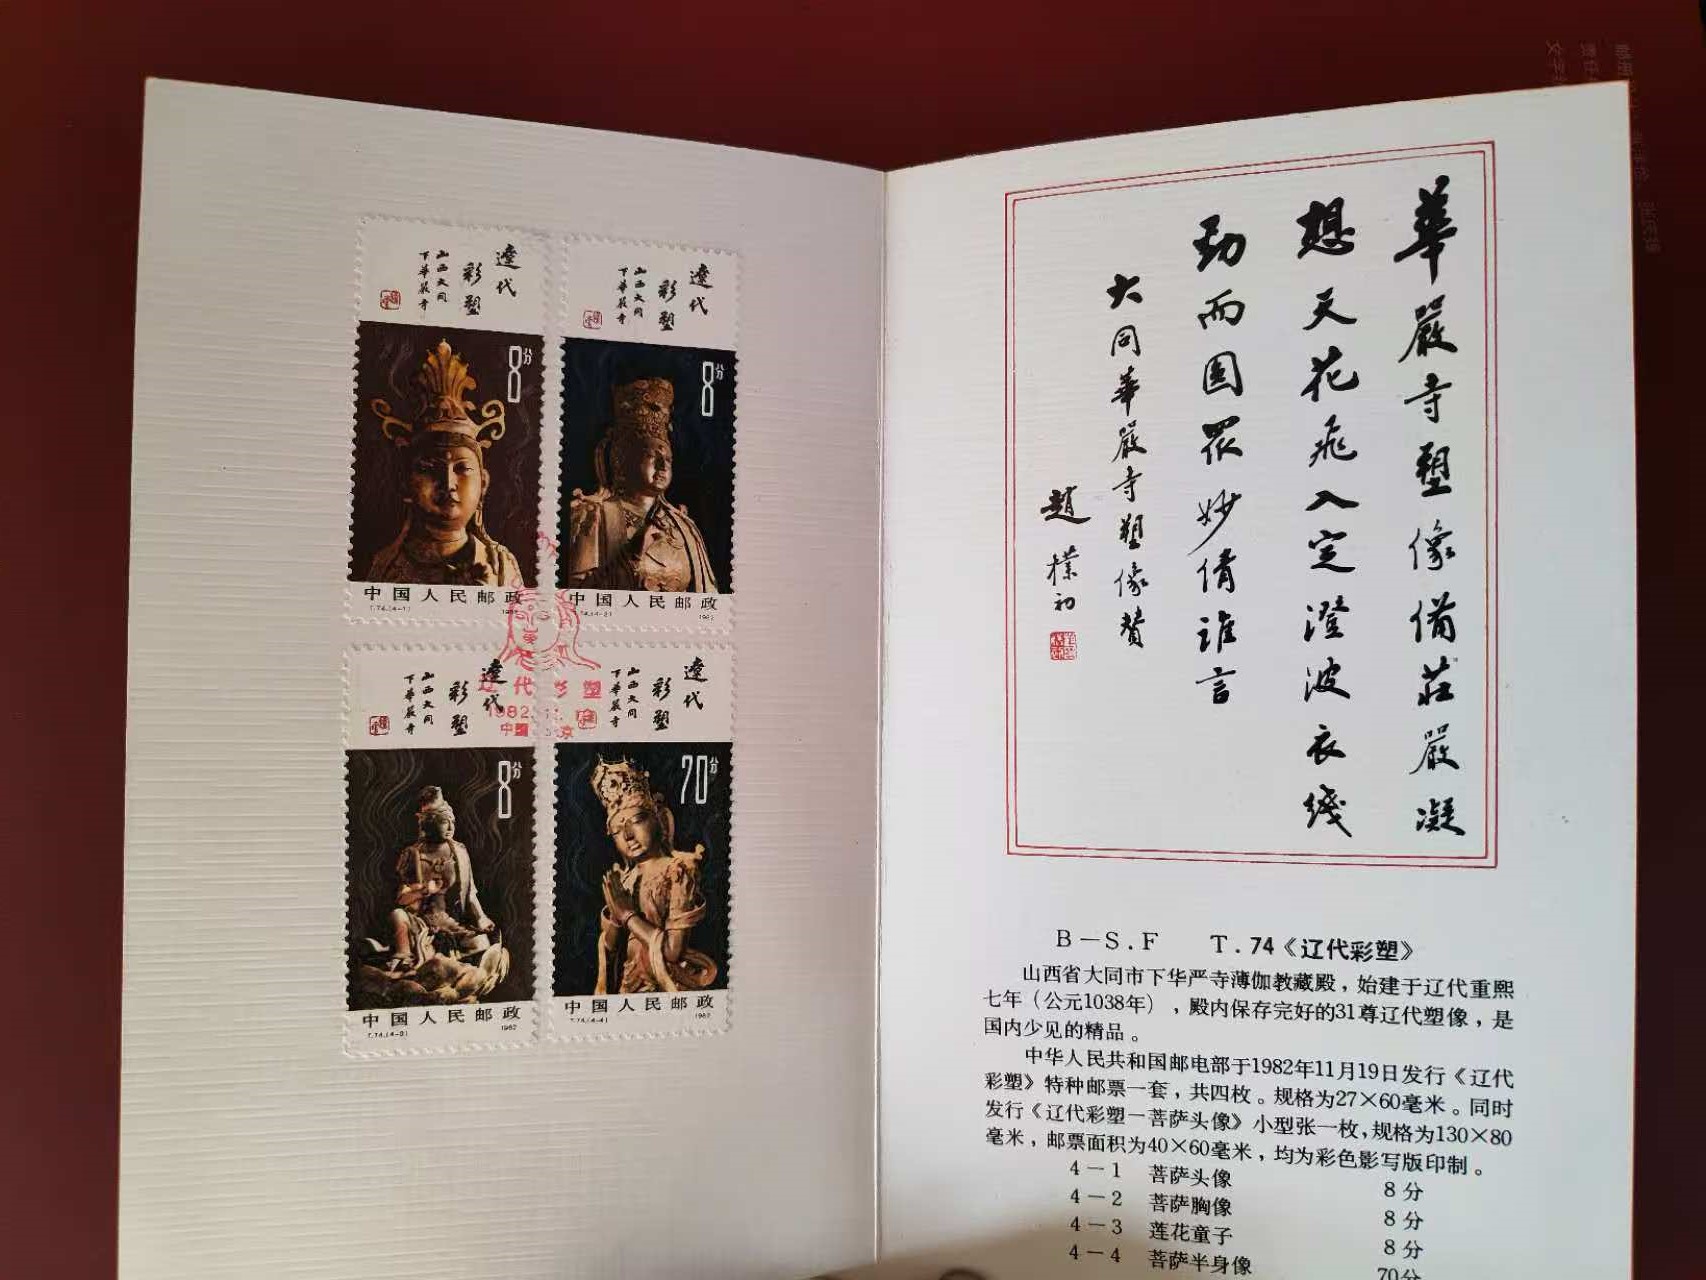 遼代
彩塑
山西大同
下華嚴寺
8分
中国人民邮政
T.74.(4-1)
遼代
彩塑
山西大同
下華嚴寺
8分
中国人民邮政
1982
遼代
彩塑
山西大同
下華嚴寺
8分
中国人民邮政
T.74.(4-3)
1982
遼代
彩塑
山西大同
下華嚴寺
70分
中国人民邮政
T.74.(4-4)
1982
華嚴寺塑像備莊嚴凝
想天花飛入定澄波衣綫
勁而圓眾妙倩誰言
大同華嚴寺塑像贊
趙樸初
B－S.F T.74《辽代彩塑》
山西省大同市下华严寺薄伽教藏殿，始建于辽代重熙
七年（公元1038年），殿内保存完好的31尊辽代塑像，是
国内少见的精品。
中华人民共和国邮电部于1982年11月19日发行《辽代
彩塑》特种邮票一套，共四枚。规格为27×60毫米。同时
发行《辽代彩塑－菩萨头像》小型张一枚，规格为130×80
毫米，邮票面积为40×60毫米，均为彩色影写版印制。
4－1 菩萨头像 8分
4－2 菩萨胸像 8分
4－3 莲花童子 8分
4－4 菩萨半身像 70分